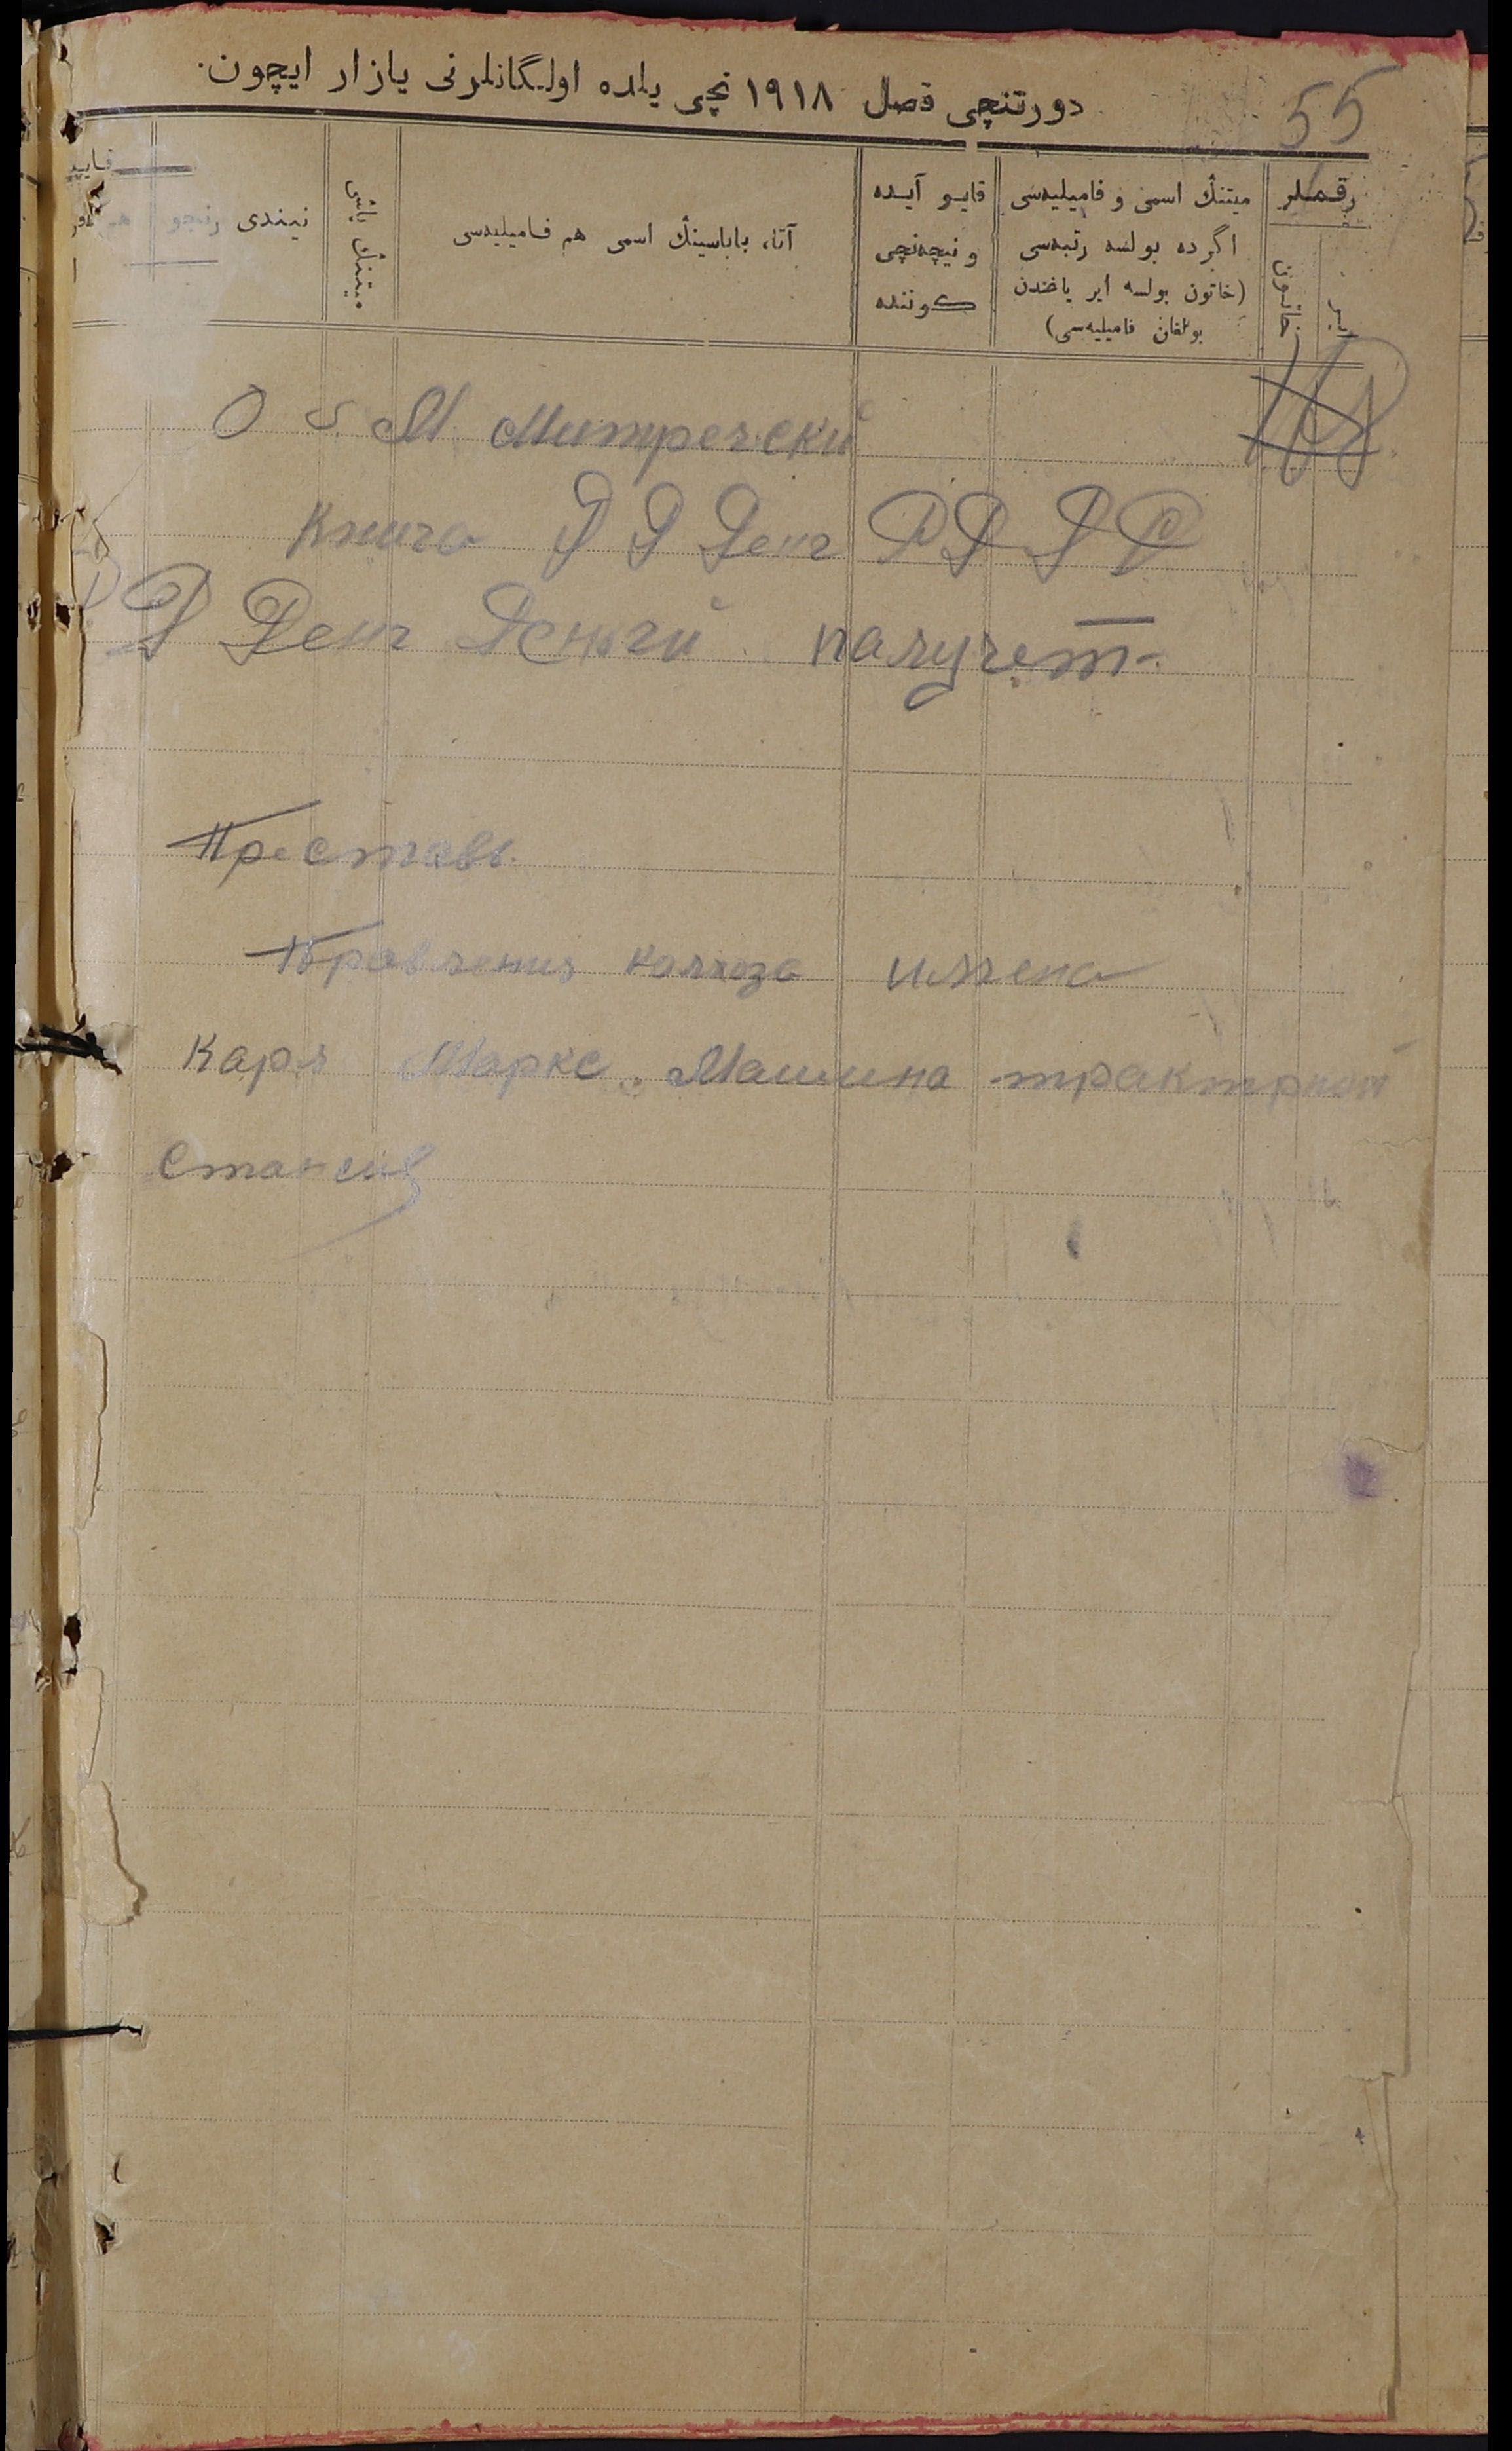 55
دورتنچی فصل ١٩١٨ نچی یلده اولگانلرنی یازار ایچون.
رقملر
ایر
خاتون
میتنڭ اسمی و فامیلیه‌سی
اگرده بولسه رتبه‌سی
(خاتون بولسه ایر یاغندن
بولغان فامیلیه‌سی)
قایو آیده
و نیچه‌نچی
کوننده
آتا، باباسینڭ اسمی هم فامیلیه‌سی
میتنڭ یاشی
نیندی رنجو
М Митрегеки
Книга Д Д Денг Р Д Д Р
Д Денг Деньги палучет
Приставь
Правления калхоза имена
Карл Маркс Машина трактрной
Стансия